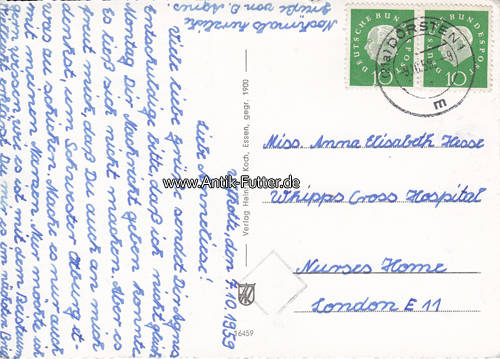 Nochmals herzliche
Grüße von D. Agnes.
Wulfen, den 7.10.1959
Liebe Anneliese!
Viele liebe Grüße sendet Dir Agnes
Entschuldige bitte, daß ich nicht gleich
Montag Dir Nachricht geben konnte.
es ließ sich nicht machen. Aber es
freut mich, daß Du auch an mich
denkst, um
was zu schreiben. Mache es nur auch
mit meinen Mareien. Nur möchte ich
gern wissen, wie es ist mit dem
Du mir es im nächsten Brief
Verlag Heinr. Koch, Essen, gegr. 1900
16459
DEUTSCHE BUNDESPOST
10
DEUTSCHE BUNDESPOST
10
(21a) DORSTEN 1
m
Miss. Anna Elisabeth Hesse
Whipps Cross Hospital
Nurses Home
London E 11
www.Antik-Futter.de